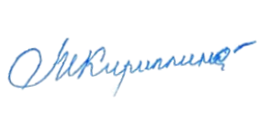 МКириллина